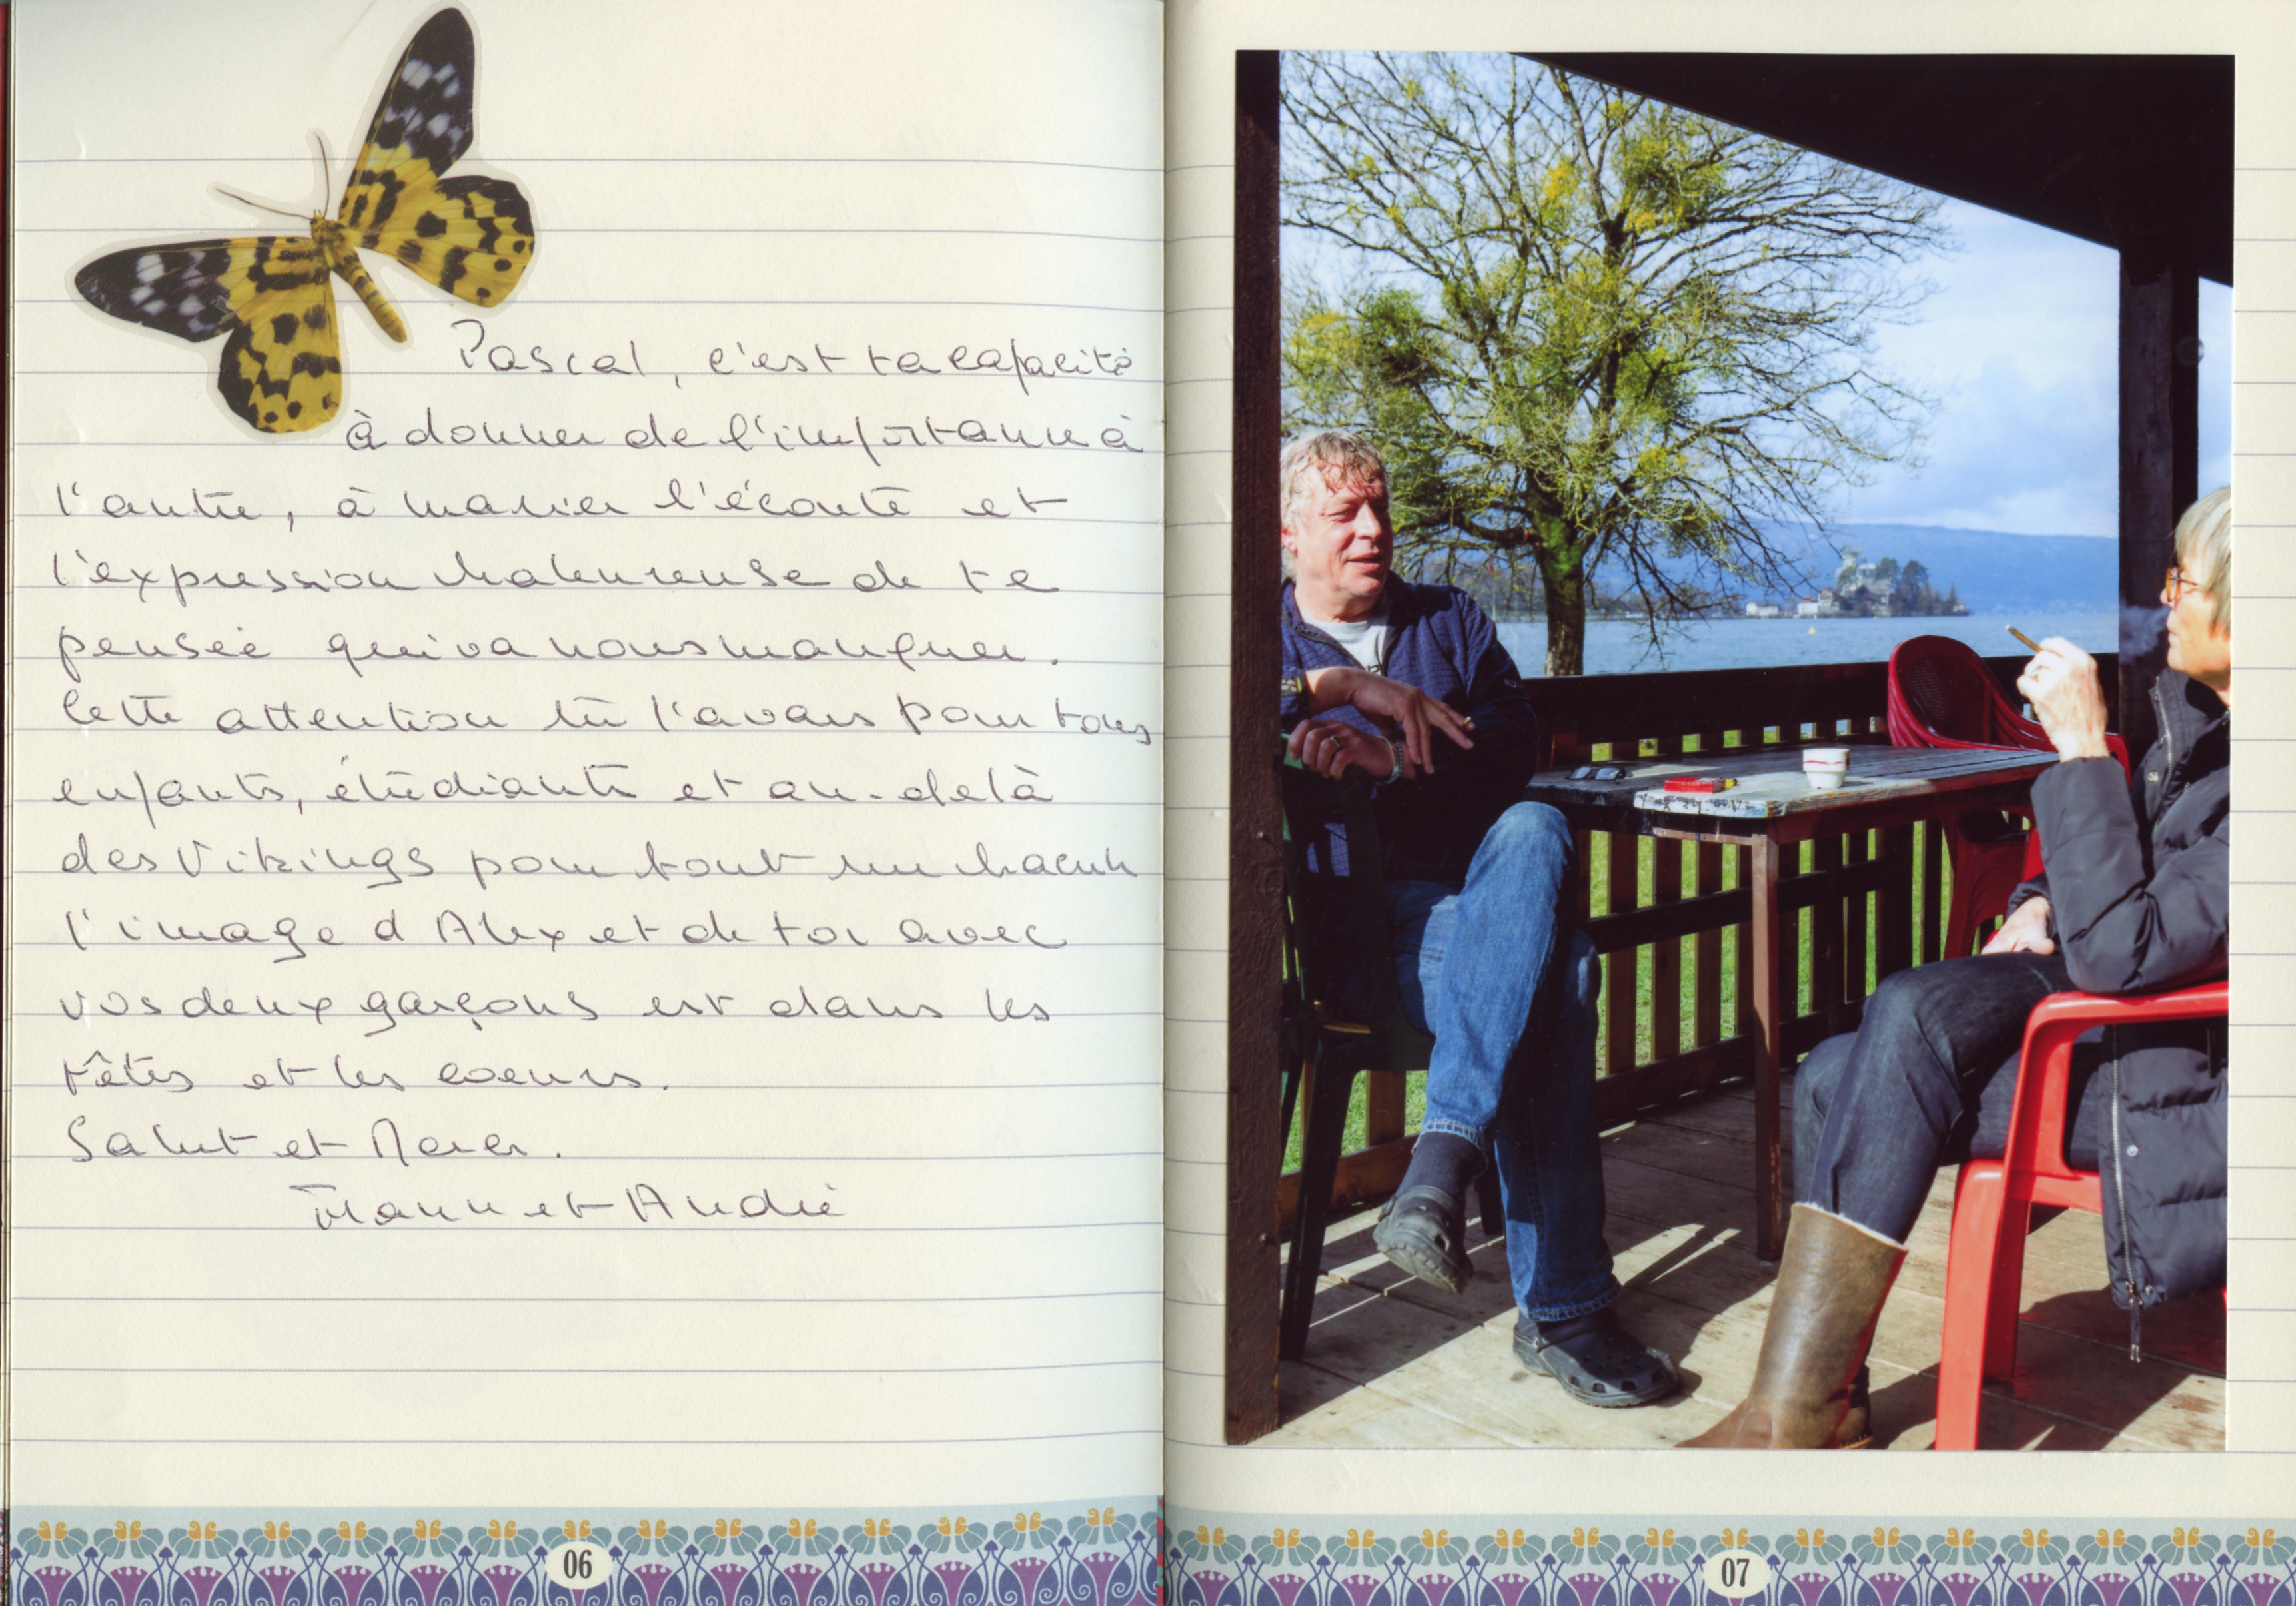 Pascal, c'est ta capacité
à donner de l'importance à
l'autre, à marier l'écoute et
l'expression chaleureuse de ta
pensée qui va nous manquer.
Cette attention tu l'avais pour tous
enfants, étudiants et au-delà
des Vikings pour tout un chacun
l'image d'Alex et de toi avec
vos deux garçons est dans les
têtes et les coeurs.
Salut et Merci.
et André
06
07